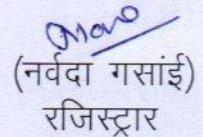 (नर्वदा गसांई)
रजिस्ट्रार